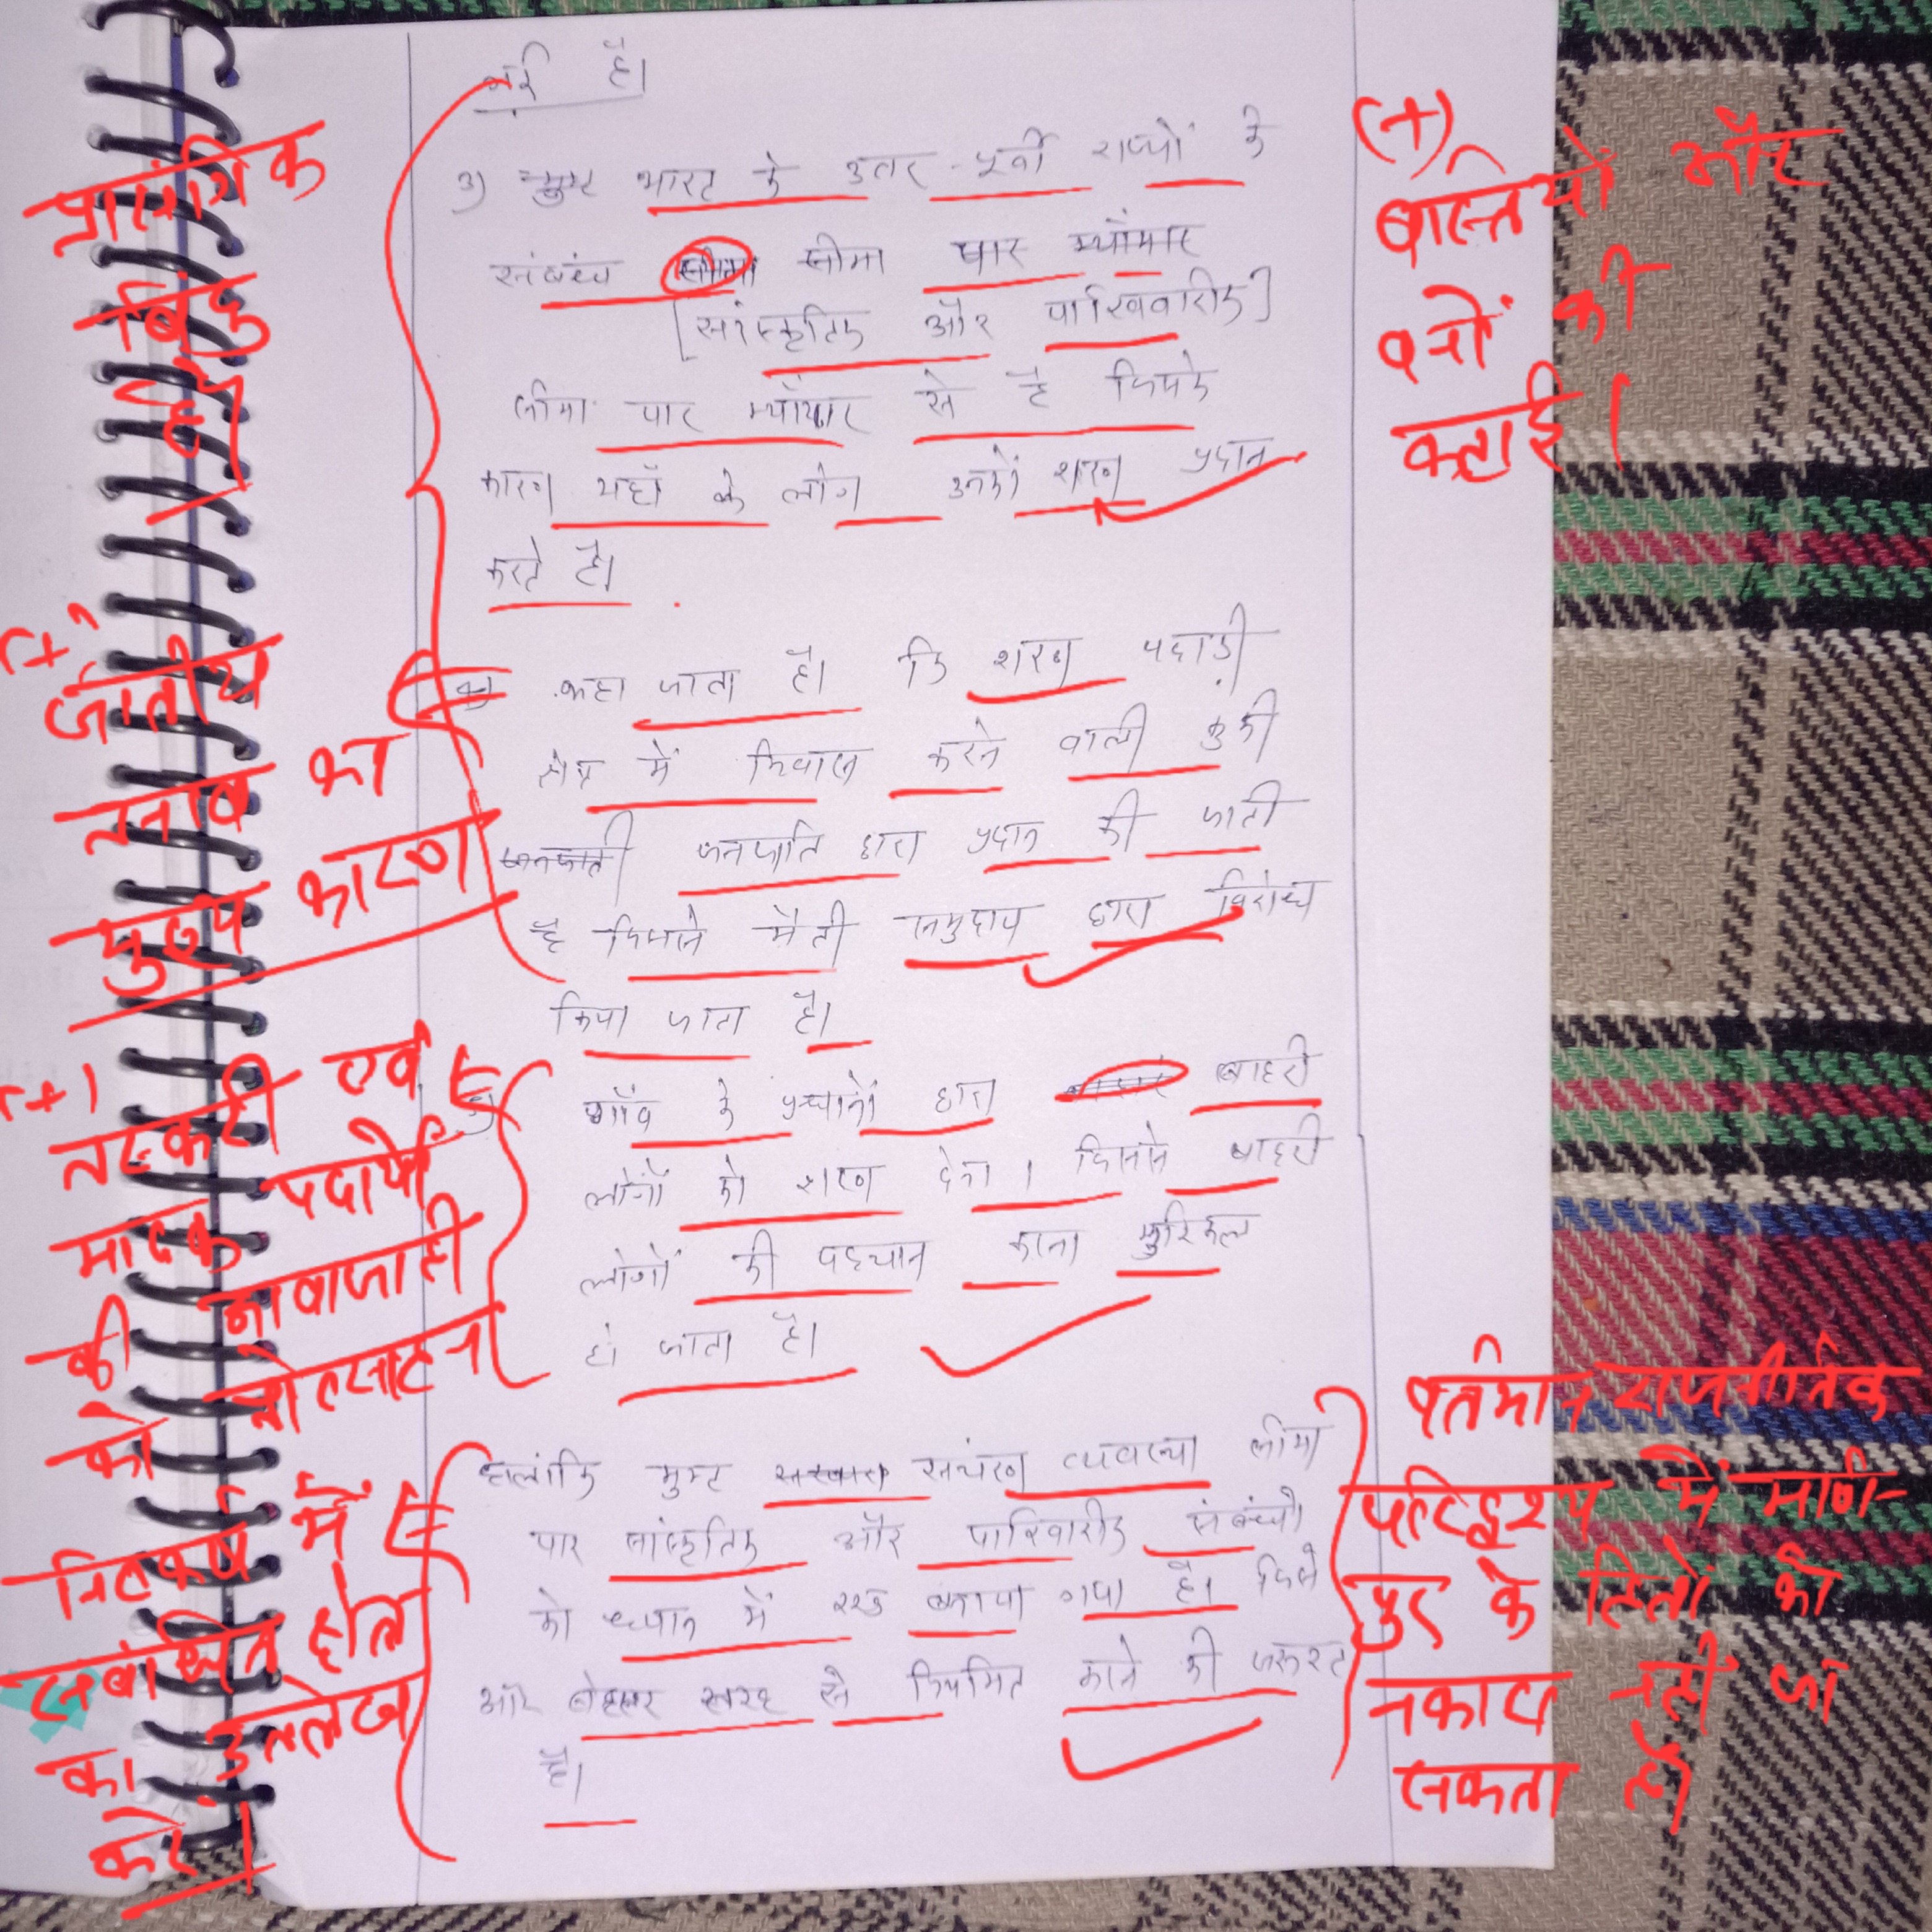 गई है।
3) भारत के उत्तर-पूर्वी राज्यों के
संबंध सीमा पार म्याँमार
[सांस्कृतिक और पारिवारीक]
सीमा पार म्याँमार से है जिसके
कारण यहाँ के लोग उनको शरण प्रदान
करते है।
4) कहा जाता है। कि शरण पहाड़ी
क्षेत्र में निवास करने वाली कुकी
जनजाती जनजाति द्वारा प्रदान की जाती
है जिससे मैती समुदाय द्वारा विरोध
किया जाता है।
5) गाँव के प्रधानों द्वारा बाहरी
लोगों को शरण देना। जिससे बाहरी
लोगों की पहचान करना मुश्किल
हो जाता है।
हालांकि मुक्त संचरण व्यवस्था सीमा
पार सांस्कृतिक और पारिवारीक संबंधों
को ध्यान में रख बनाया गया है। जिसे
और बेहतर तरह से नियमित करने की जरूरत
है।
प्रासंगिक
बिंदु
है।
(+)
जातीय
तनाव का
मुख्य कारण
(+)
तस्करी एवं
मादक पदार्थों
की आवाजाही
को प्रोत्साहन
निष्कर्ष में
संबंधित होते
का उल्लेख
करें।
(+)
बास्तियों और
वनों की
कटाई।
वर्तमान राजनीतिक
परिदृश्य में मणि-
पुर के हितों को
नकारा नहीं जा
सकता है